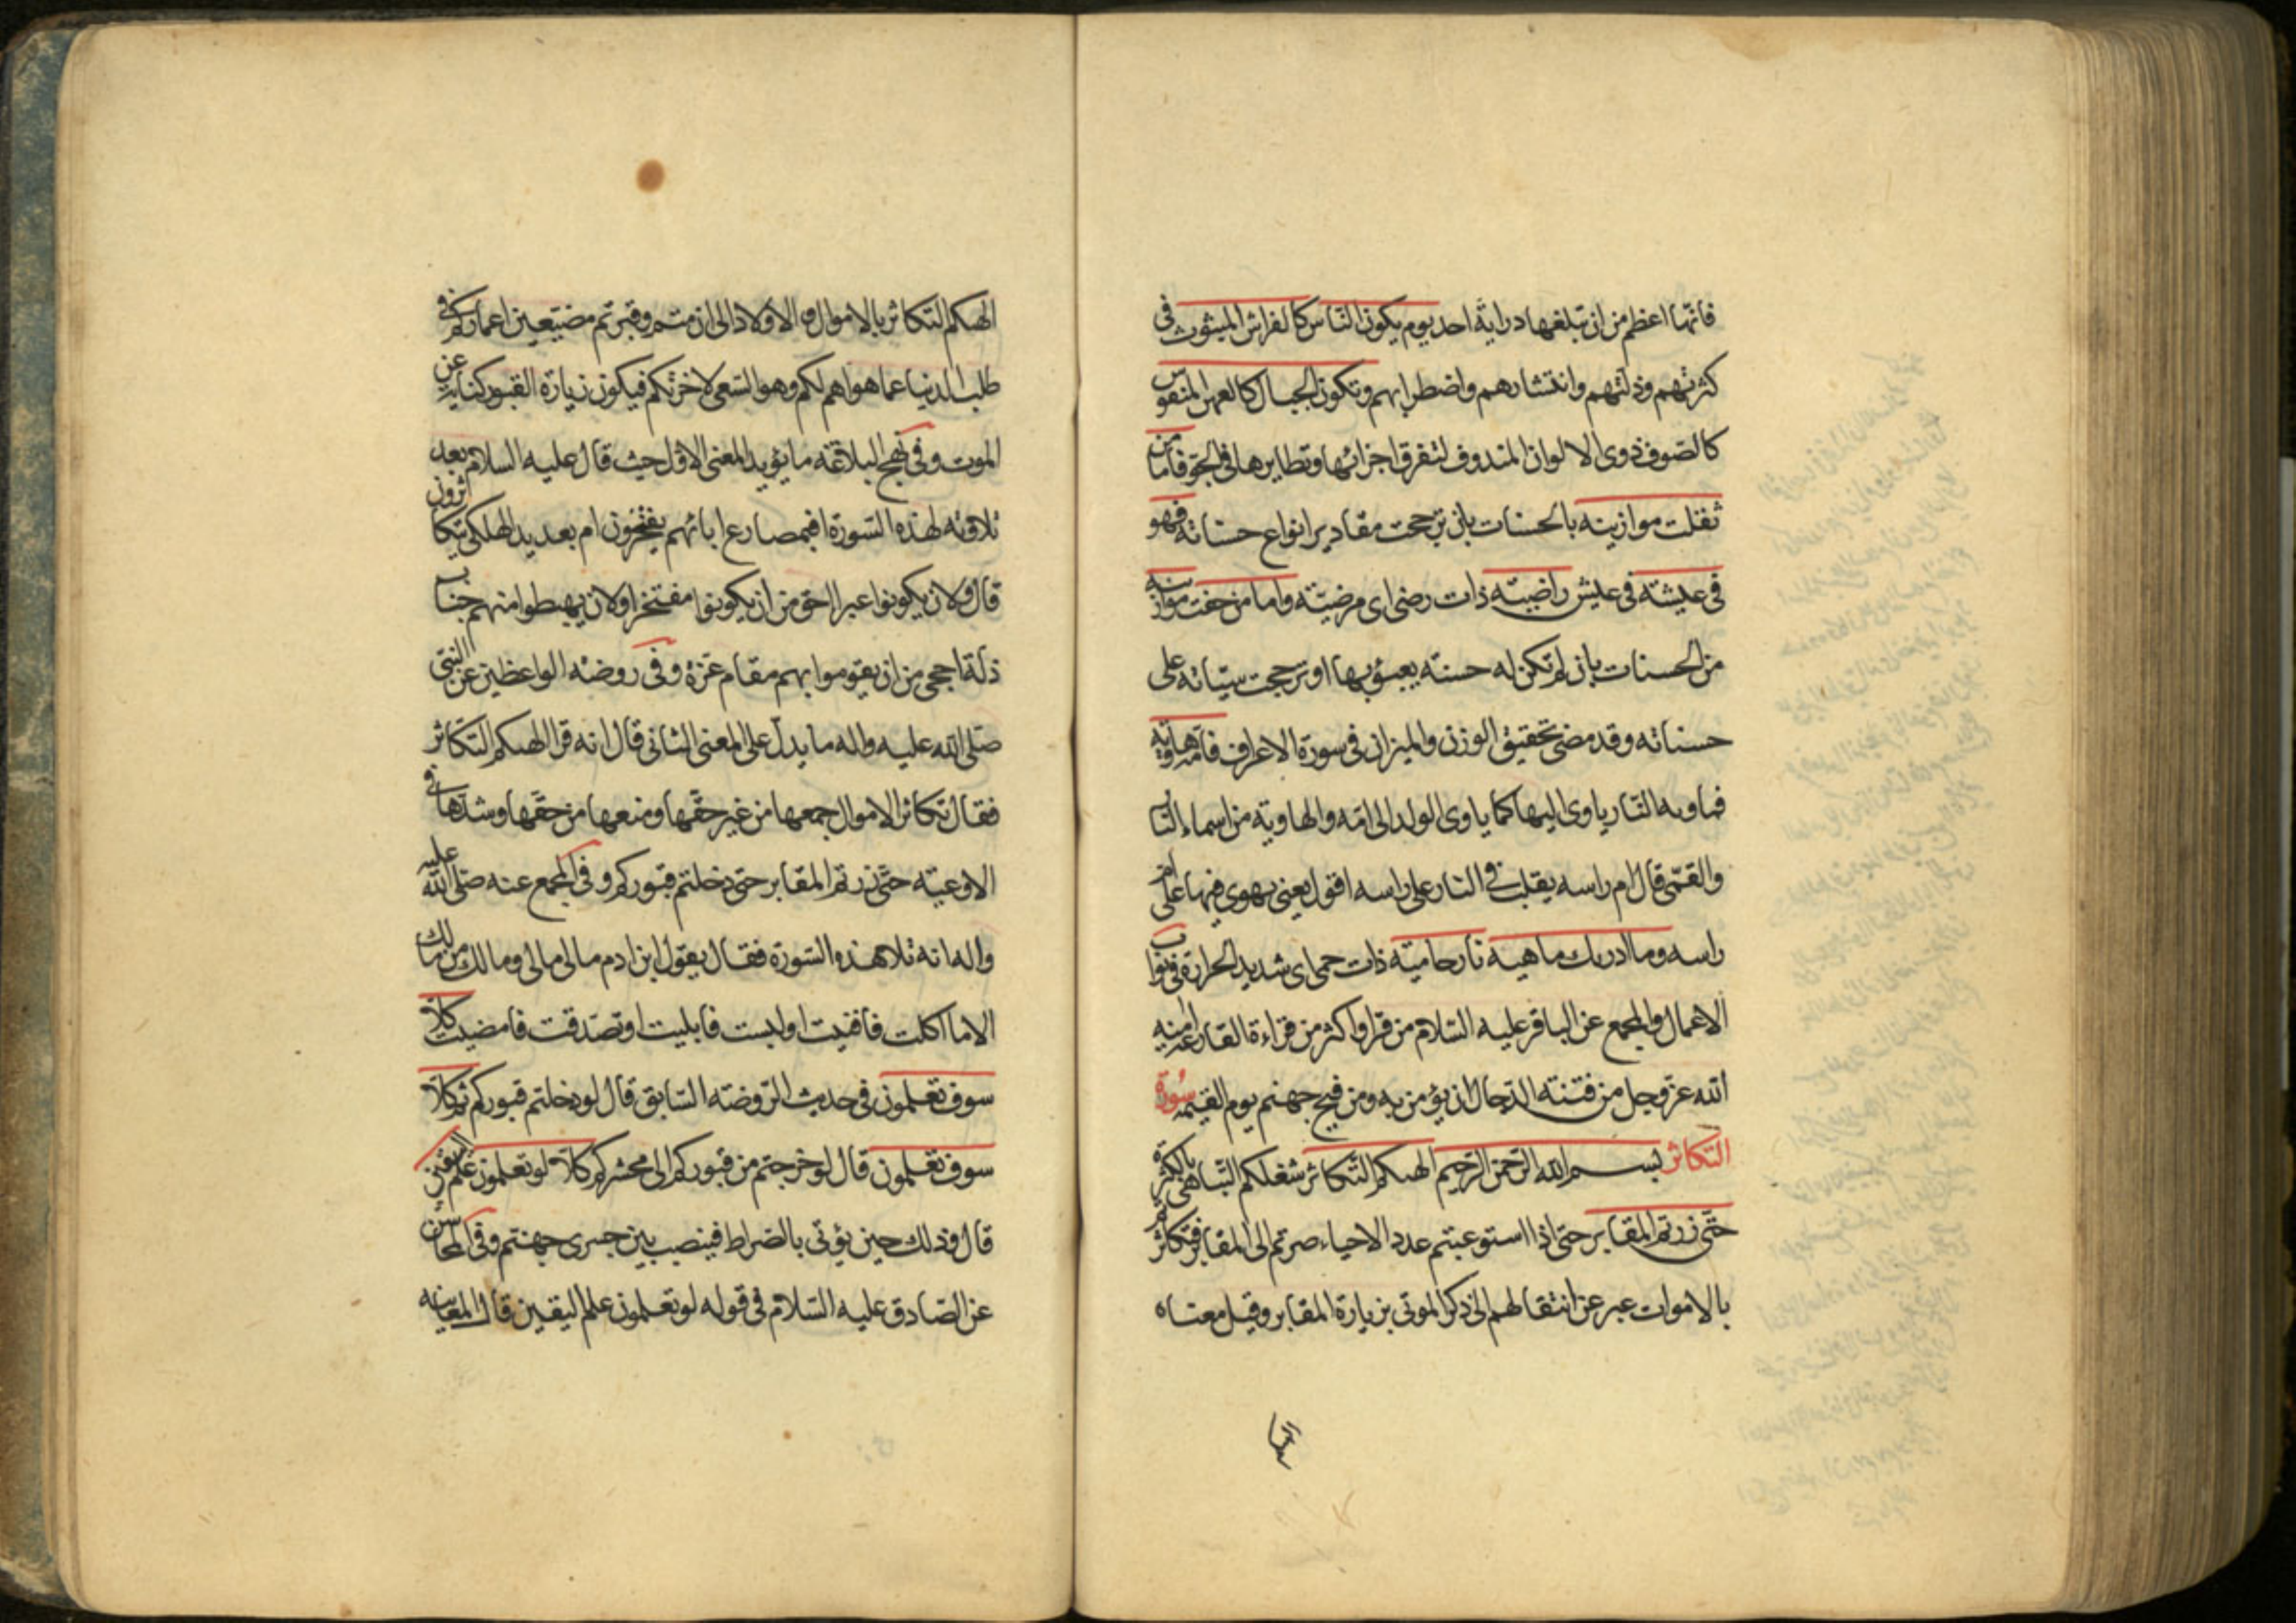 فانها اعظم من ان تبلغها دراية احد يوم يكون الناس كالفراش المبثوث فى
كثرتهم وذلتهم وانتشارهم واضطرابهم وتكون الجبال كالعهن المنفوش
كالصوف ذوى الالوان المندوف لتفرق اجزائها وتطايرها فى الجو فاما من
ثقلت موازينه بالحسنات بان ترجحت مقادير انواع حسناته فهو
فى عيشته فى عيش راضيته ذات رضى اى مرضيته واما من خفت موازينه
من الحسنات بان لم تكن له حسنته يعبؤ بها او ترجحت سيئاته على
حسناته وقد مضى تحقيق الوزن والميزان فى سورة الاعراف فامه هاوية
فماويه النار ياوى اليها كما ياوى الولد الى امه والهاوية من اسماء النار
والقمى قال ام راسه يقلب فى النار على راسه اقول يعنى يهوى فيها على ام
راسه وما ادريك ماهيه نار حاميته ذات حمى اى شديد الحرارة فى ثواب
الاعمال والمجمع عن الباقر عليه السلام من قرا واكثر من قراءة القارعه امنه
الله عز وجل من فتنته الدجال ان يؤمن به ومن فيح جهنم يوم القيمه سورة
التكاثر بسم الله الرحمن الرحيم الهىكم التكاثر شغلكم التباهى بالكثرة
حتى زرتم المقابر حتى اذا استوعبتم عدد الاحياء صرتم الى المقابر فتكاثرتم
بالاموات عبر عن انتقالهم الى ذكر الموتى بزيارة المقابر وقيل معناه
الهىكم
الهىكم التكاثر بالاموال والاولاد الى ان متم وقبرتم مضيعين اعماركم فى
طلب الدنيا عما هو اهم لكم وهو السعى لاخرتكم فيكون زيارة القبور كناية عن
الموت وفى نهج البلاغته ما يؤيد المعنى الاول حيث قال عليه السلام بعد
تلاوته لهذه السورة افبمصارع ابائهم يفتخرون ام بعديد الهلكى يتكاثرون
قال ولان يكونوا عبرا احق من ان يكونوا مفتخرا ولان يهبطوا منهم جناب
ذلة احجى من ان يقوموا بهم مقام عزة وفى روضته الواعظين عن النبى
صلى الله عليه واله ما يدل على المعنى الثانى قال انه قرا الهىكم التكاثر
فقال تكاثر الاموال جمعها من غير حقها ومنعها من حقها وشدها فى
الاوعيته حتى زرتم المقابر حتى دخلتم قبوركم وفى المجمع عنه صلى الله عليه
واله انه تلا هذه السورة فقال يقول ابن ادم مالى مالى ومالك من مالك
الا ما اكلت فافنيت او لبست فابليت او تصدقت فامضيت كلا
سوف تعلمون فى حديث الروضته السابق قال لو دخلتم قبوركم ثم كلا
سوف تعلمون قال لو خرجتم من قبوركم الى محشركم كلا لو تعلمون علم اليقين
قال وذلك حين يؤتى بالصراط فينصب بين جسرى جهنم وفى المحاسن
عن الصادق عليه السلام فى قوله لو تعلمون علم اليقين قال المعاينه